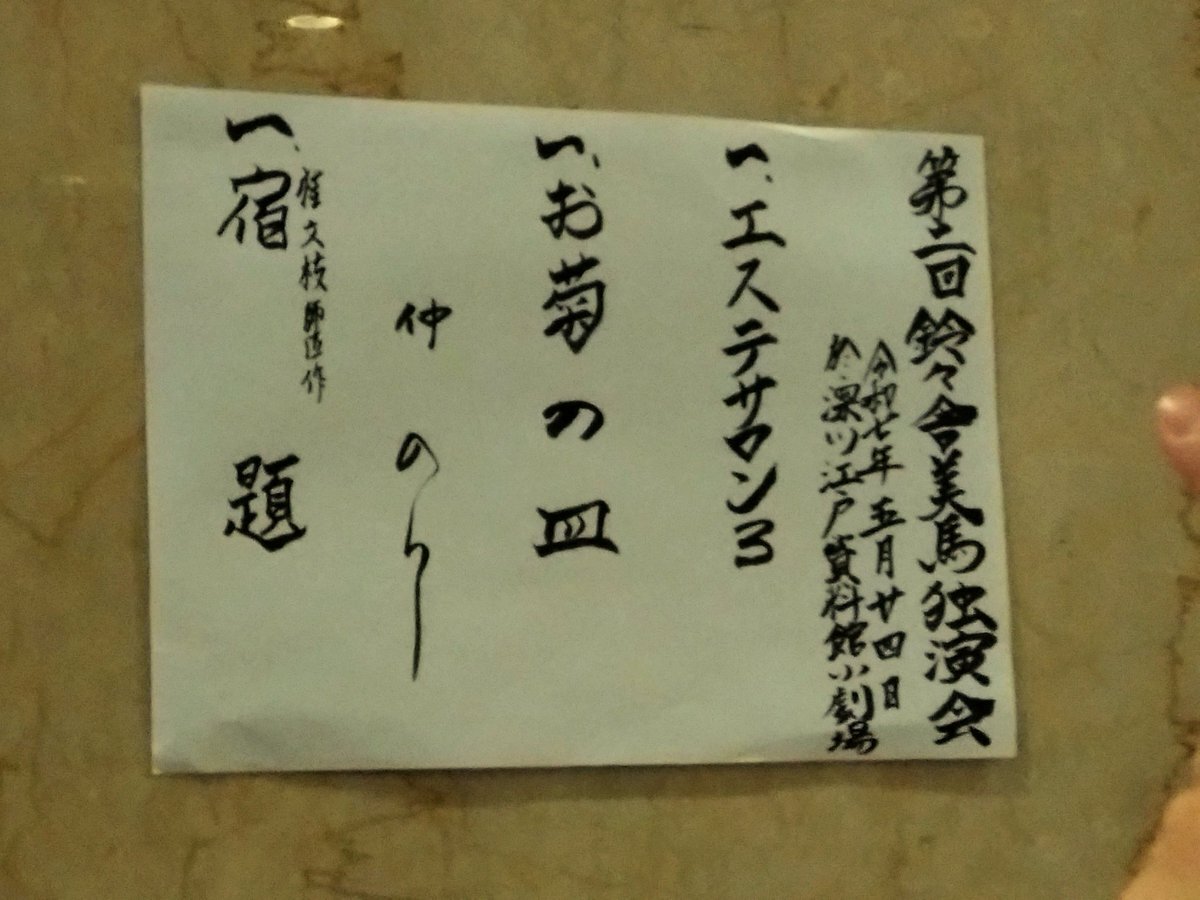 第二回鈴々舎美馬独演会
令和七年五月廿四日
於、深川江戸資料館小劇場
一、エステサロン3
一、お菊の皿
仲のり
一、宿題
桂文枝師匠作